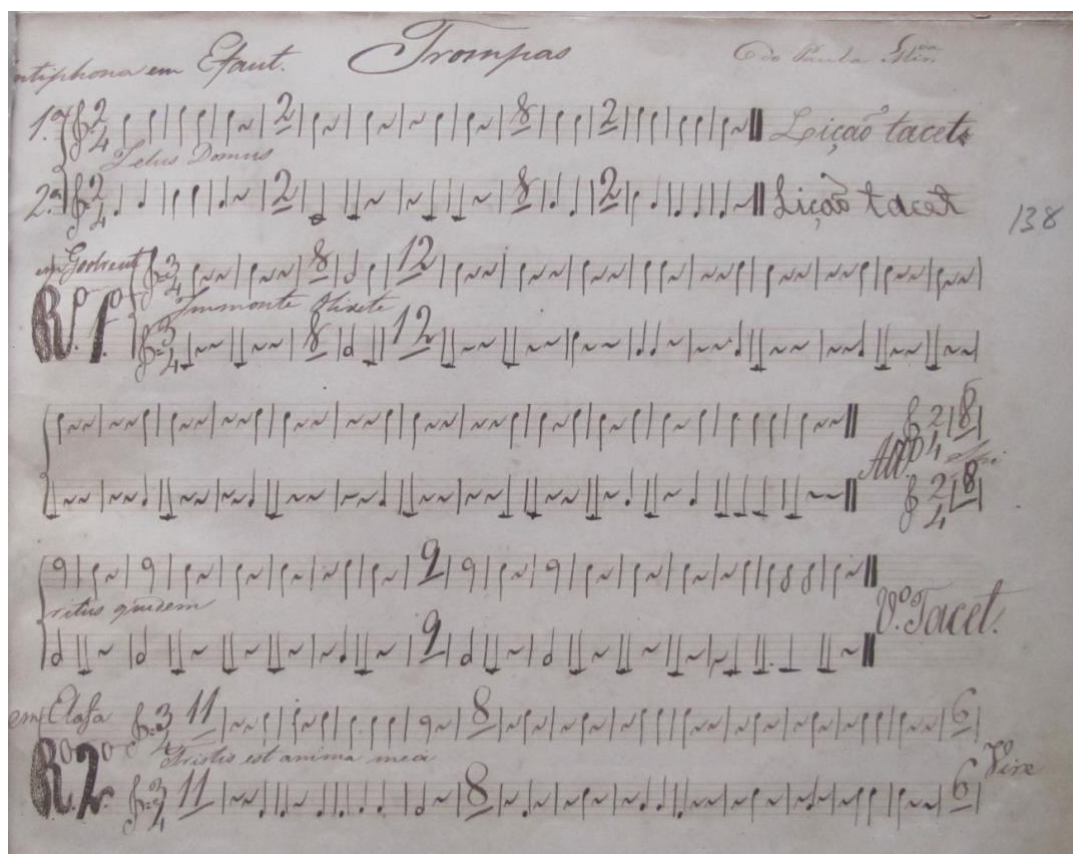 Trompas
ntiphona em Efaut.
1.ª 2 4 2 8 2 Lição tacet
Zelus Domus
2.ª 2 4 2 8 2 Lição tacet
138
em Gsolreut 3 4 8 12
R.º 1.º Inmonte Oliveti
3 4 8 12
2 4 8
All.º
2 4 8
9
ritus quidem
V.º Tacet.
9
em Elafa 3 4 11 8 6
R.º 2.º Tristis est anima mea
Vire
3 4 11 8 6